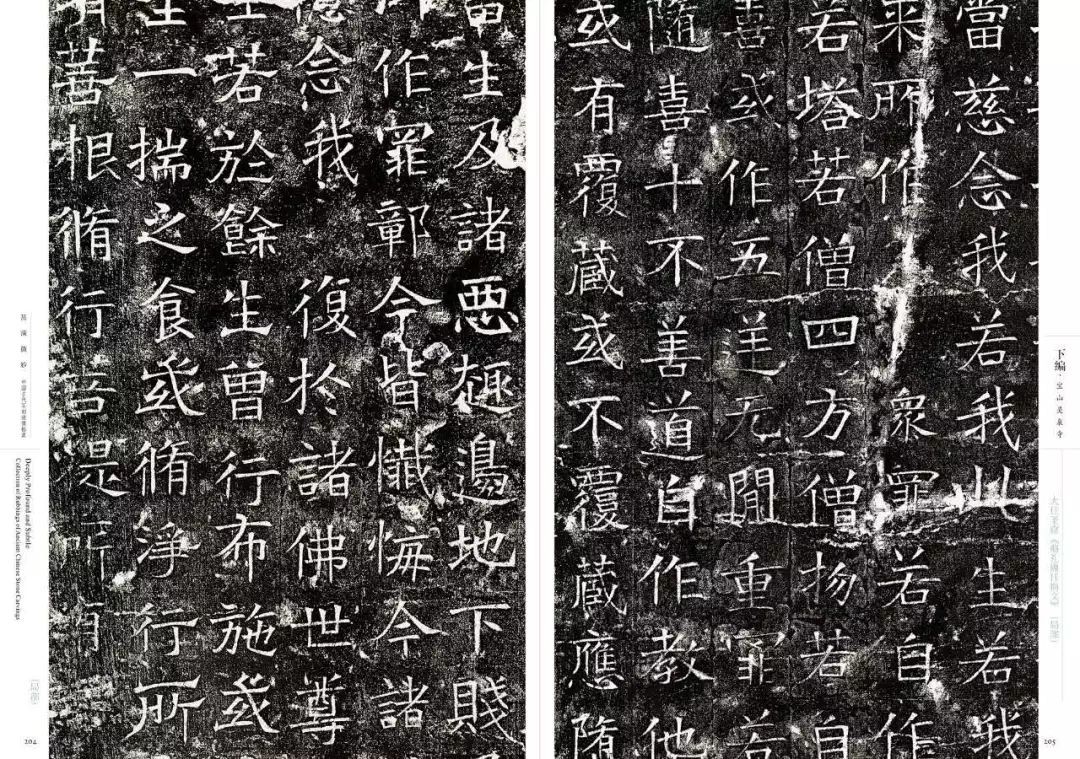 當慈念我若我此生若我
來所作眾罪若自作
若塔若僧四方僧物若自
喜或作五逆无閒重罪若
隨喜十不善道自作教他
或有覆藏或不覆藏應墮
畜生及諸惡趣邊地下賤
所作罪鄣今皆懺悔今諸
憶念我 復於諸佛世尊
若於餘生曾行布施或
一揣之食或脩淨行所
有善根脩行菩提所有
下编·宝山灵泉寺
（局部）
205
Deeply Profound and Subtle
Collection of Rubbings of Ancient Chinese Stone Carvings
（局部）
204